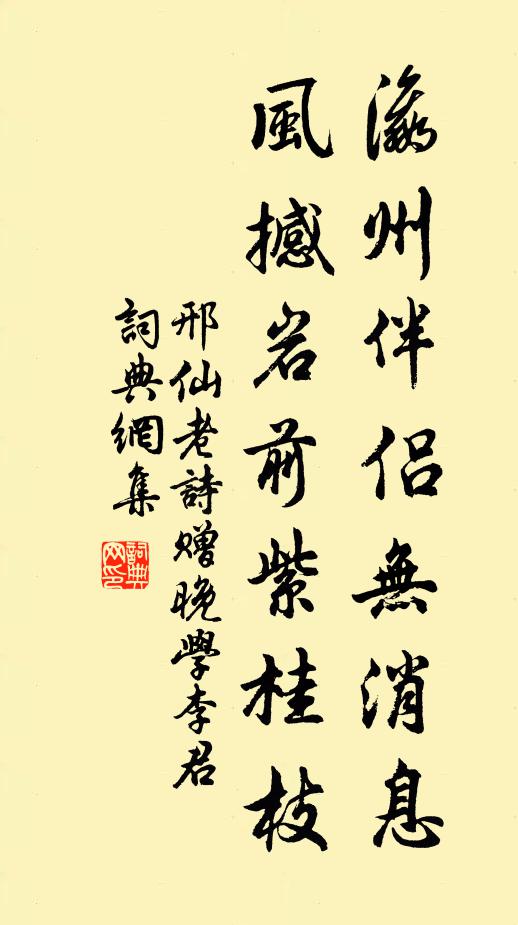 瀛州伴侣無消息
風撼岩前紫桂枝
邢仙老詩贈晚學李君
詞典網集
詞典
网印